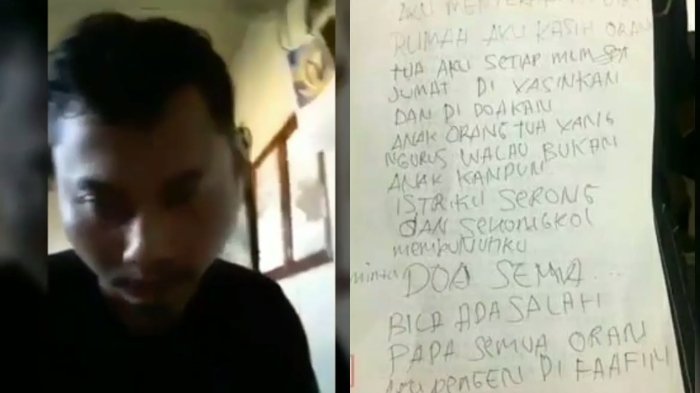 AKU
RUMAH AKU KASIH ORANG
TUA AKU SETIAP MLM
JUMAT DI YASINKAN
DAN DI DOAKAN
ANAK ORANG TUA YANG
NGURUS WALAU BUKAN
ANAK KANDUN
ISTRIKU SERONG
DAN SEKONGKOL
MEMBUNUHKU
minta DOA SEMUA...
BILA ADA SALAH
PADA SEMUA ORAN
AKU PENGEN DI FAAFIN